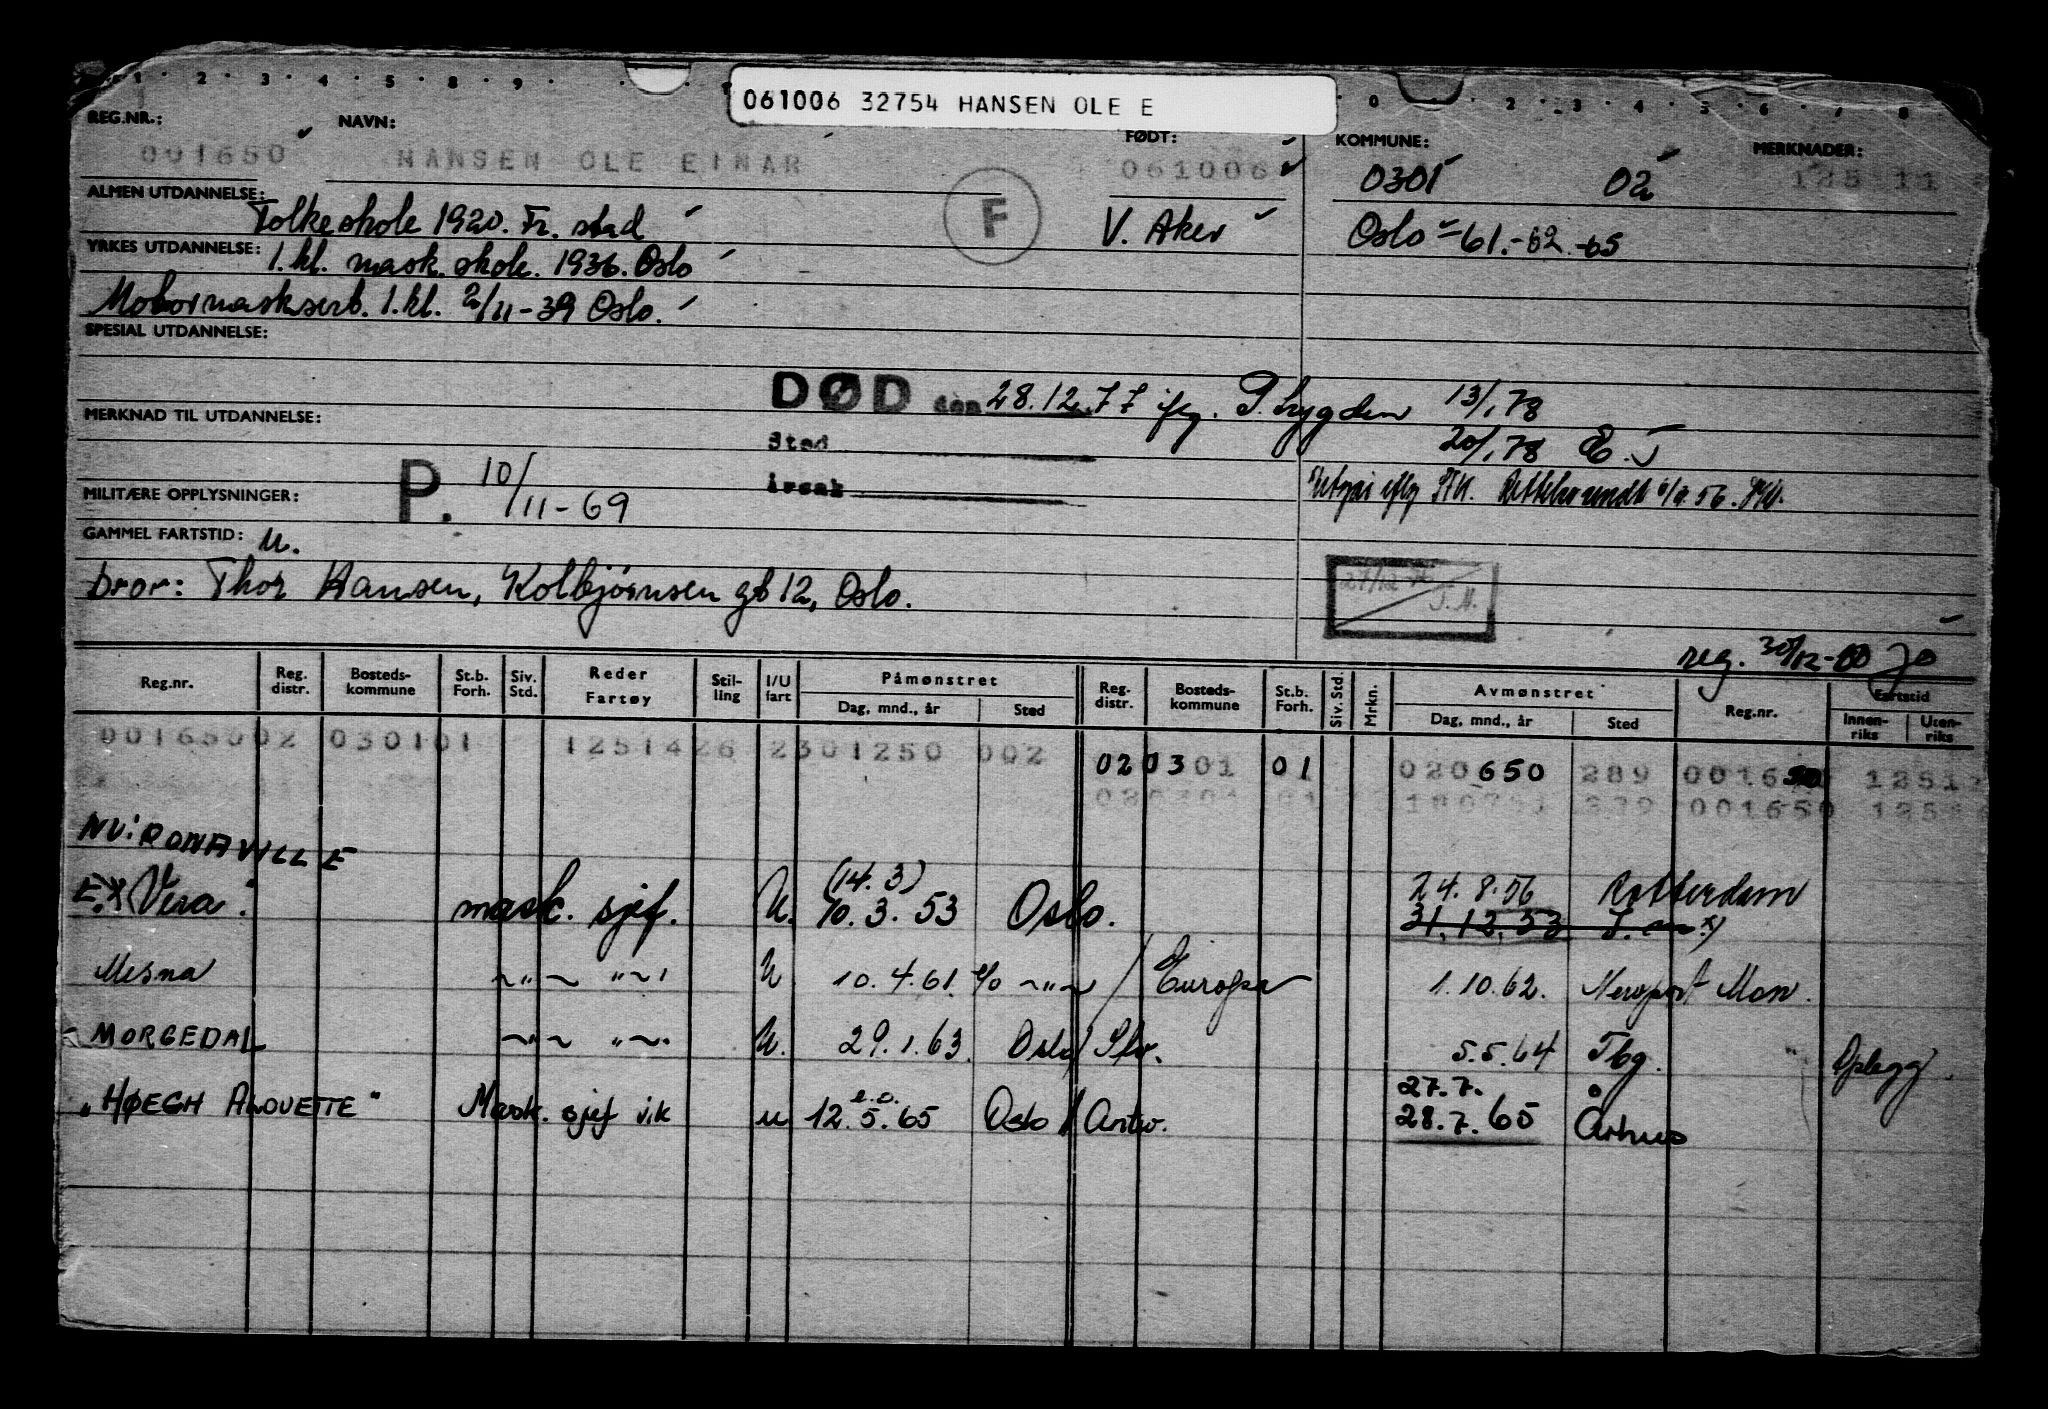 061006 32754 HANSEN OLE E
REG.NR.: NAVN: FØDT: KOMMUNE: MERKNADER:
001650 HANSEN OLE EINAR 061006 0301 02 125 11
ALMEN UTDANNELSE: Folkeskole 1920. Fr. stad F V. Aker Oslo -61.-62.-65
YRKES UTDANNELSE: 1. kl. mask. skole. 1936. Oslo
Motormasksert. 1. kl. 2/11-39 Oslo.
SPESIAL UTDANNELSE:
DØD den 28.12.77 ifg. P. Lygden 13/1.78
MERKNAD TIL UTDANNELSE:
Sted 20/1.78 E.J
årsak
MILITÆRE OPPLYSNINGER: P. 10/11-69
GAMMEL FARTSTID: U.
bror: Thor Hansen, Kolbjørnsen gt 12, Oslo.
27/12 J.M.
reg. 30/12-60 Jo
Reg.nr. Reg. distr. Bosteds-kommune St.b. Forh. Siv. Std. Reder Fartøy Stil-ling I/U fart Påmønstret Dag, mnd., år Sted Reg. distr. Bosteds-kommune St.b. Forh. Siv. Std. Mrkn. Avmønstret Dag, mnd., år Sted Reg.nr. Fartstid Innen-riks Uten-riks
00165002 030101 1251426 2301250 002 020301 01 020650 289 001650 1251
001650
NU: RONAVILLE
EX Vera. mask. sjef. U. (14.3) 10.3.53 Oslo. 24.8.56 Rotterdam
31.12.53
Mesna -"- -"- U. 10.4.61. e/o -"- / Europa 1.10.62. Newport Mon.
MORGEDAL -"- -"- U. 29.1.63. Oslo/ Sfv. 5.5.64 Tbg. Oplegg.
"HØEGH ALOUETTE" Mask. sjef vik u e.o. 12.5.65 Oslo / Antw. 27.7.
28.7.65 Århus